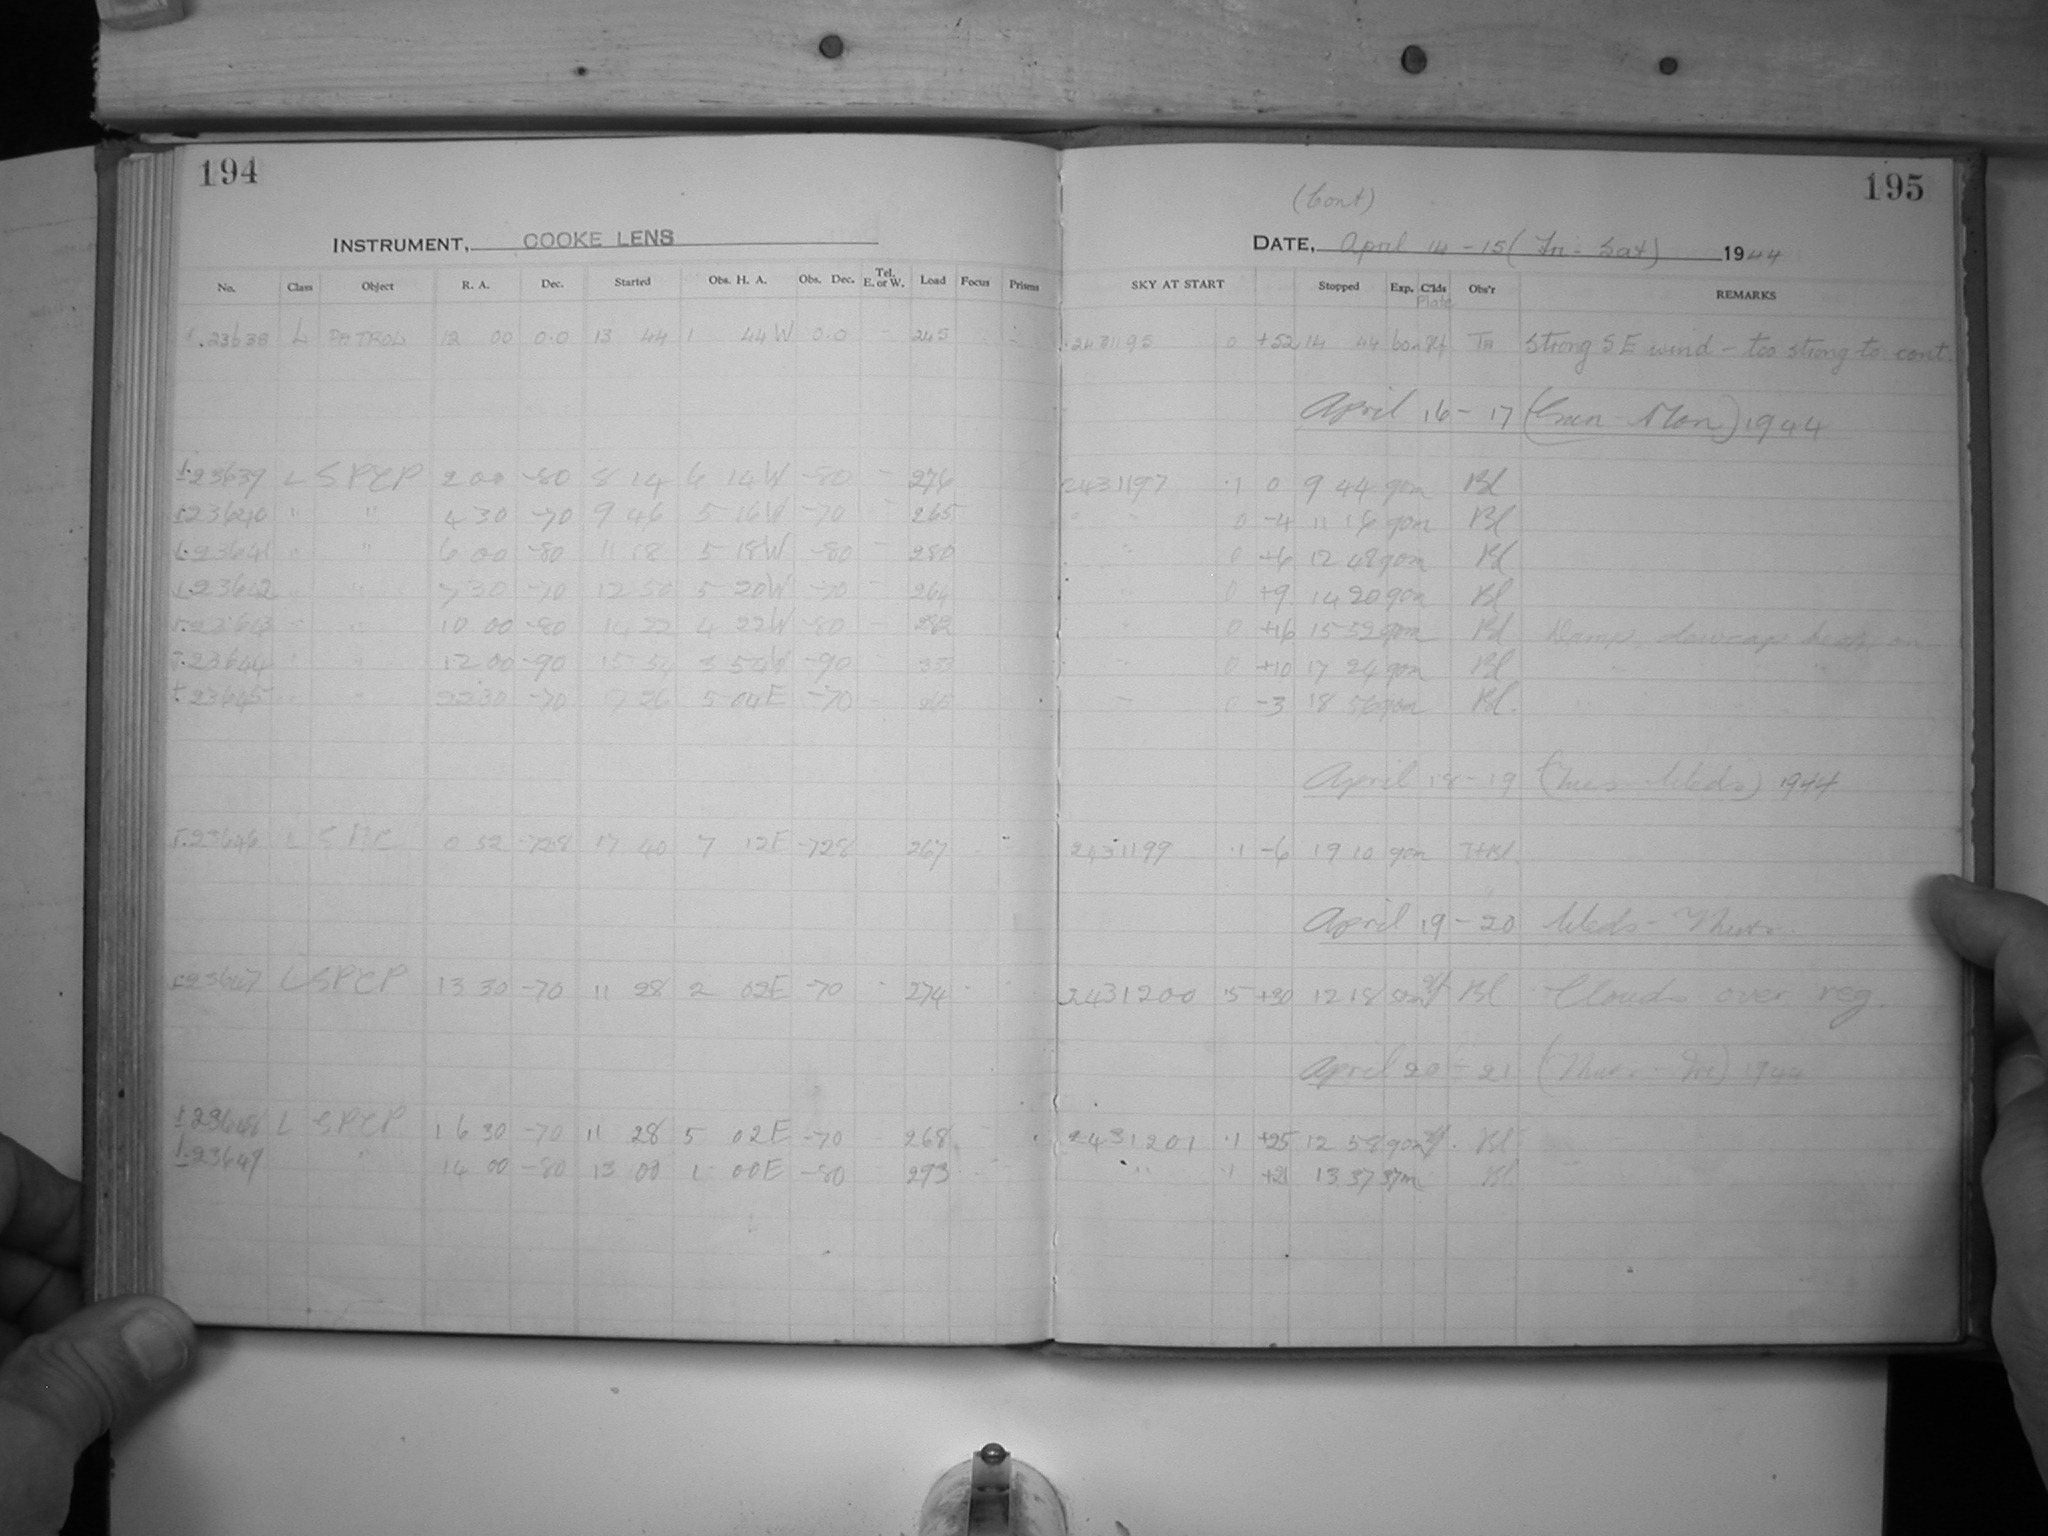 194
195
(Cont)
INSTRUMENT, COOKE LENS
DATE, April 14 - 15 (Fri - Sat) 1944
No. Class Object R. A. Dec. Started Obs. H. A. Obs. Dec. Tel. E. or W. Load Focus Prisms SKY AT START Stopped Exp. C'lds Plate Obs'r REMARKS
23638 L PATROL 12 00 0.0 13 44 1 44 W 0.0 - 245 2431195 0 +52 14 44 60m TA Strong SE wind - too strong to cont.
April 16 - 17 (Sun - Mon) 1944
23639 L SPCP 2 00 -80 8 14 6 14 W -80 - 276 2431197 .1 0 9 44 90m Bl
23640 " " 4 30 -70 9 46 5 16 W -70 - 265 " " 0 -4 11 16 90m Bl
23641 " " 6 00 -80 11 18 5 18 W -80 - 280 " 0 +6 12 48 90m Bl
23642 " " 7 30 -70 12 50 5 20 W -70 - 264 " 0 +9 14 20 90m Bl
23643 " " 10 00 -80 14 22 4 22 W -80 - 282 " 0 +16 15 52 90m Bl Damp, dewcap heat on
23644 " " 12 00 -90 15 54 3 54 W -90 - " 0 +10 17 24 90m Bl "
23645 " " 22 30 -70 17 26 5 04 E -70 265 " 0 -3 18 56 90m Bl. "
April 18 - 19 (Tues - Weds) 1944
23646 L SMC 0 52 -728 17 40 7 12 E -728 267 2431199 .1 -6 19 10 90m T+Bl.
April 19 - 20 Weds - Thurs.
23647 L SPCP 13 30 -70 11 28 2 02 E -70 274 2431200 .5 +30 12 18 50m Bl Clouds over reg.
April 20 - 21 (Thurs - Fri) 1944
23648 L SPCP 16 30 -70 11 28 5 02 E -70 268 2431201 .1 +25 12 58 90m Bl
23649 " 14 00 -80 13 00 1 00 E -80 293 " .1 +21 13 37 37m Bl